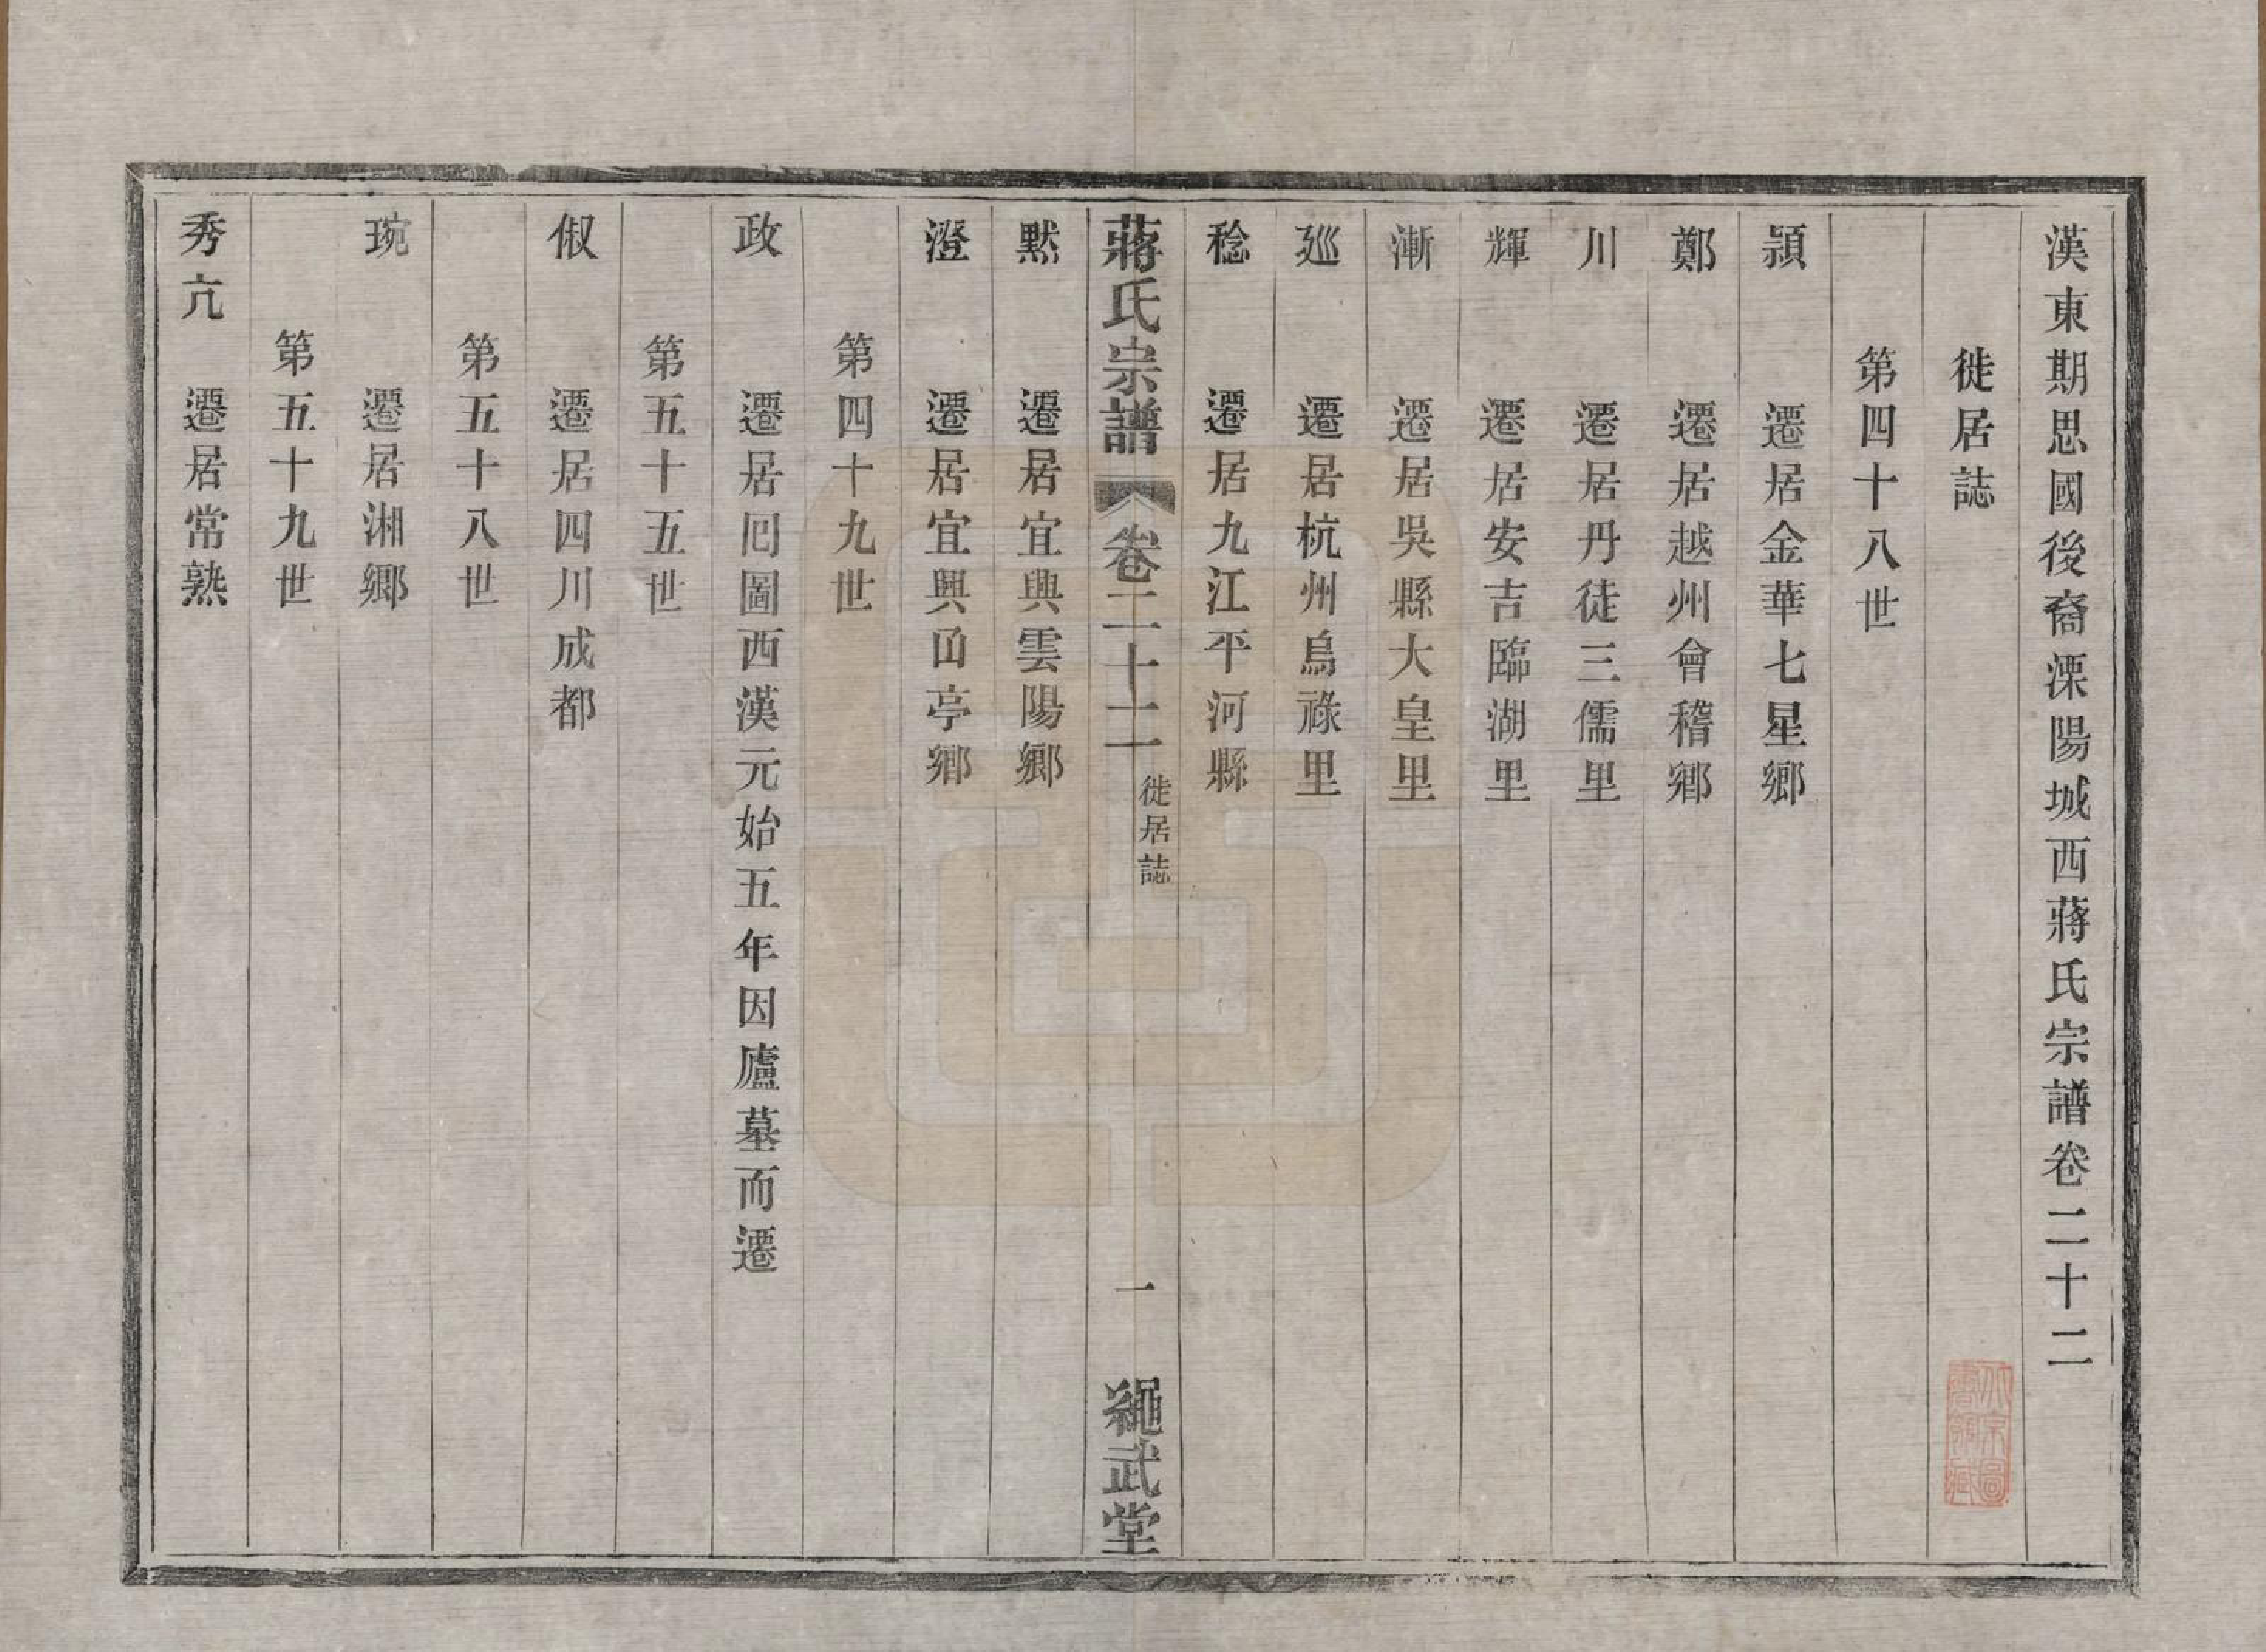 漢東期思國後裔溧陽城西蔣氏宗譜卷二十二
徙居誌
第四十八世
頴 遷居金華七星鄉
鄭 遷居越州會稽鄉
川 遷居丹徒三儒里
輝 遷居安吉臨湖里
漸 遷居吳縣大皇里
廵 遷居杭州鳥祿里
稔 遷居九江平河縣
蔣氏宗譜 卷二十二 徙居誌 一 繩武堂
黙 遷居宜興雲陽鄉
澄 遷居宜興凾亭鄉
第四十九世
政 遷居囘圖西漢元始五年因廬墓而遷
第五十五世
俶 遷居四川成都
第五十八世
琬 遷居湘鄉
第五十九世
秀亢 遷居常熟